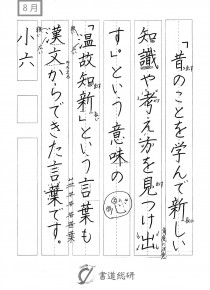 8月
「昔のことを学んで新しい
知識や考え方を見つけ出
す」という意味の
「温故知新」という言葉も
漢文からできた言葉です。
小六
書道総研